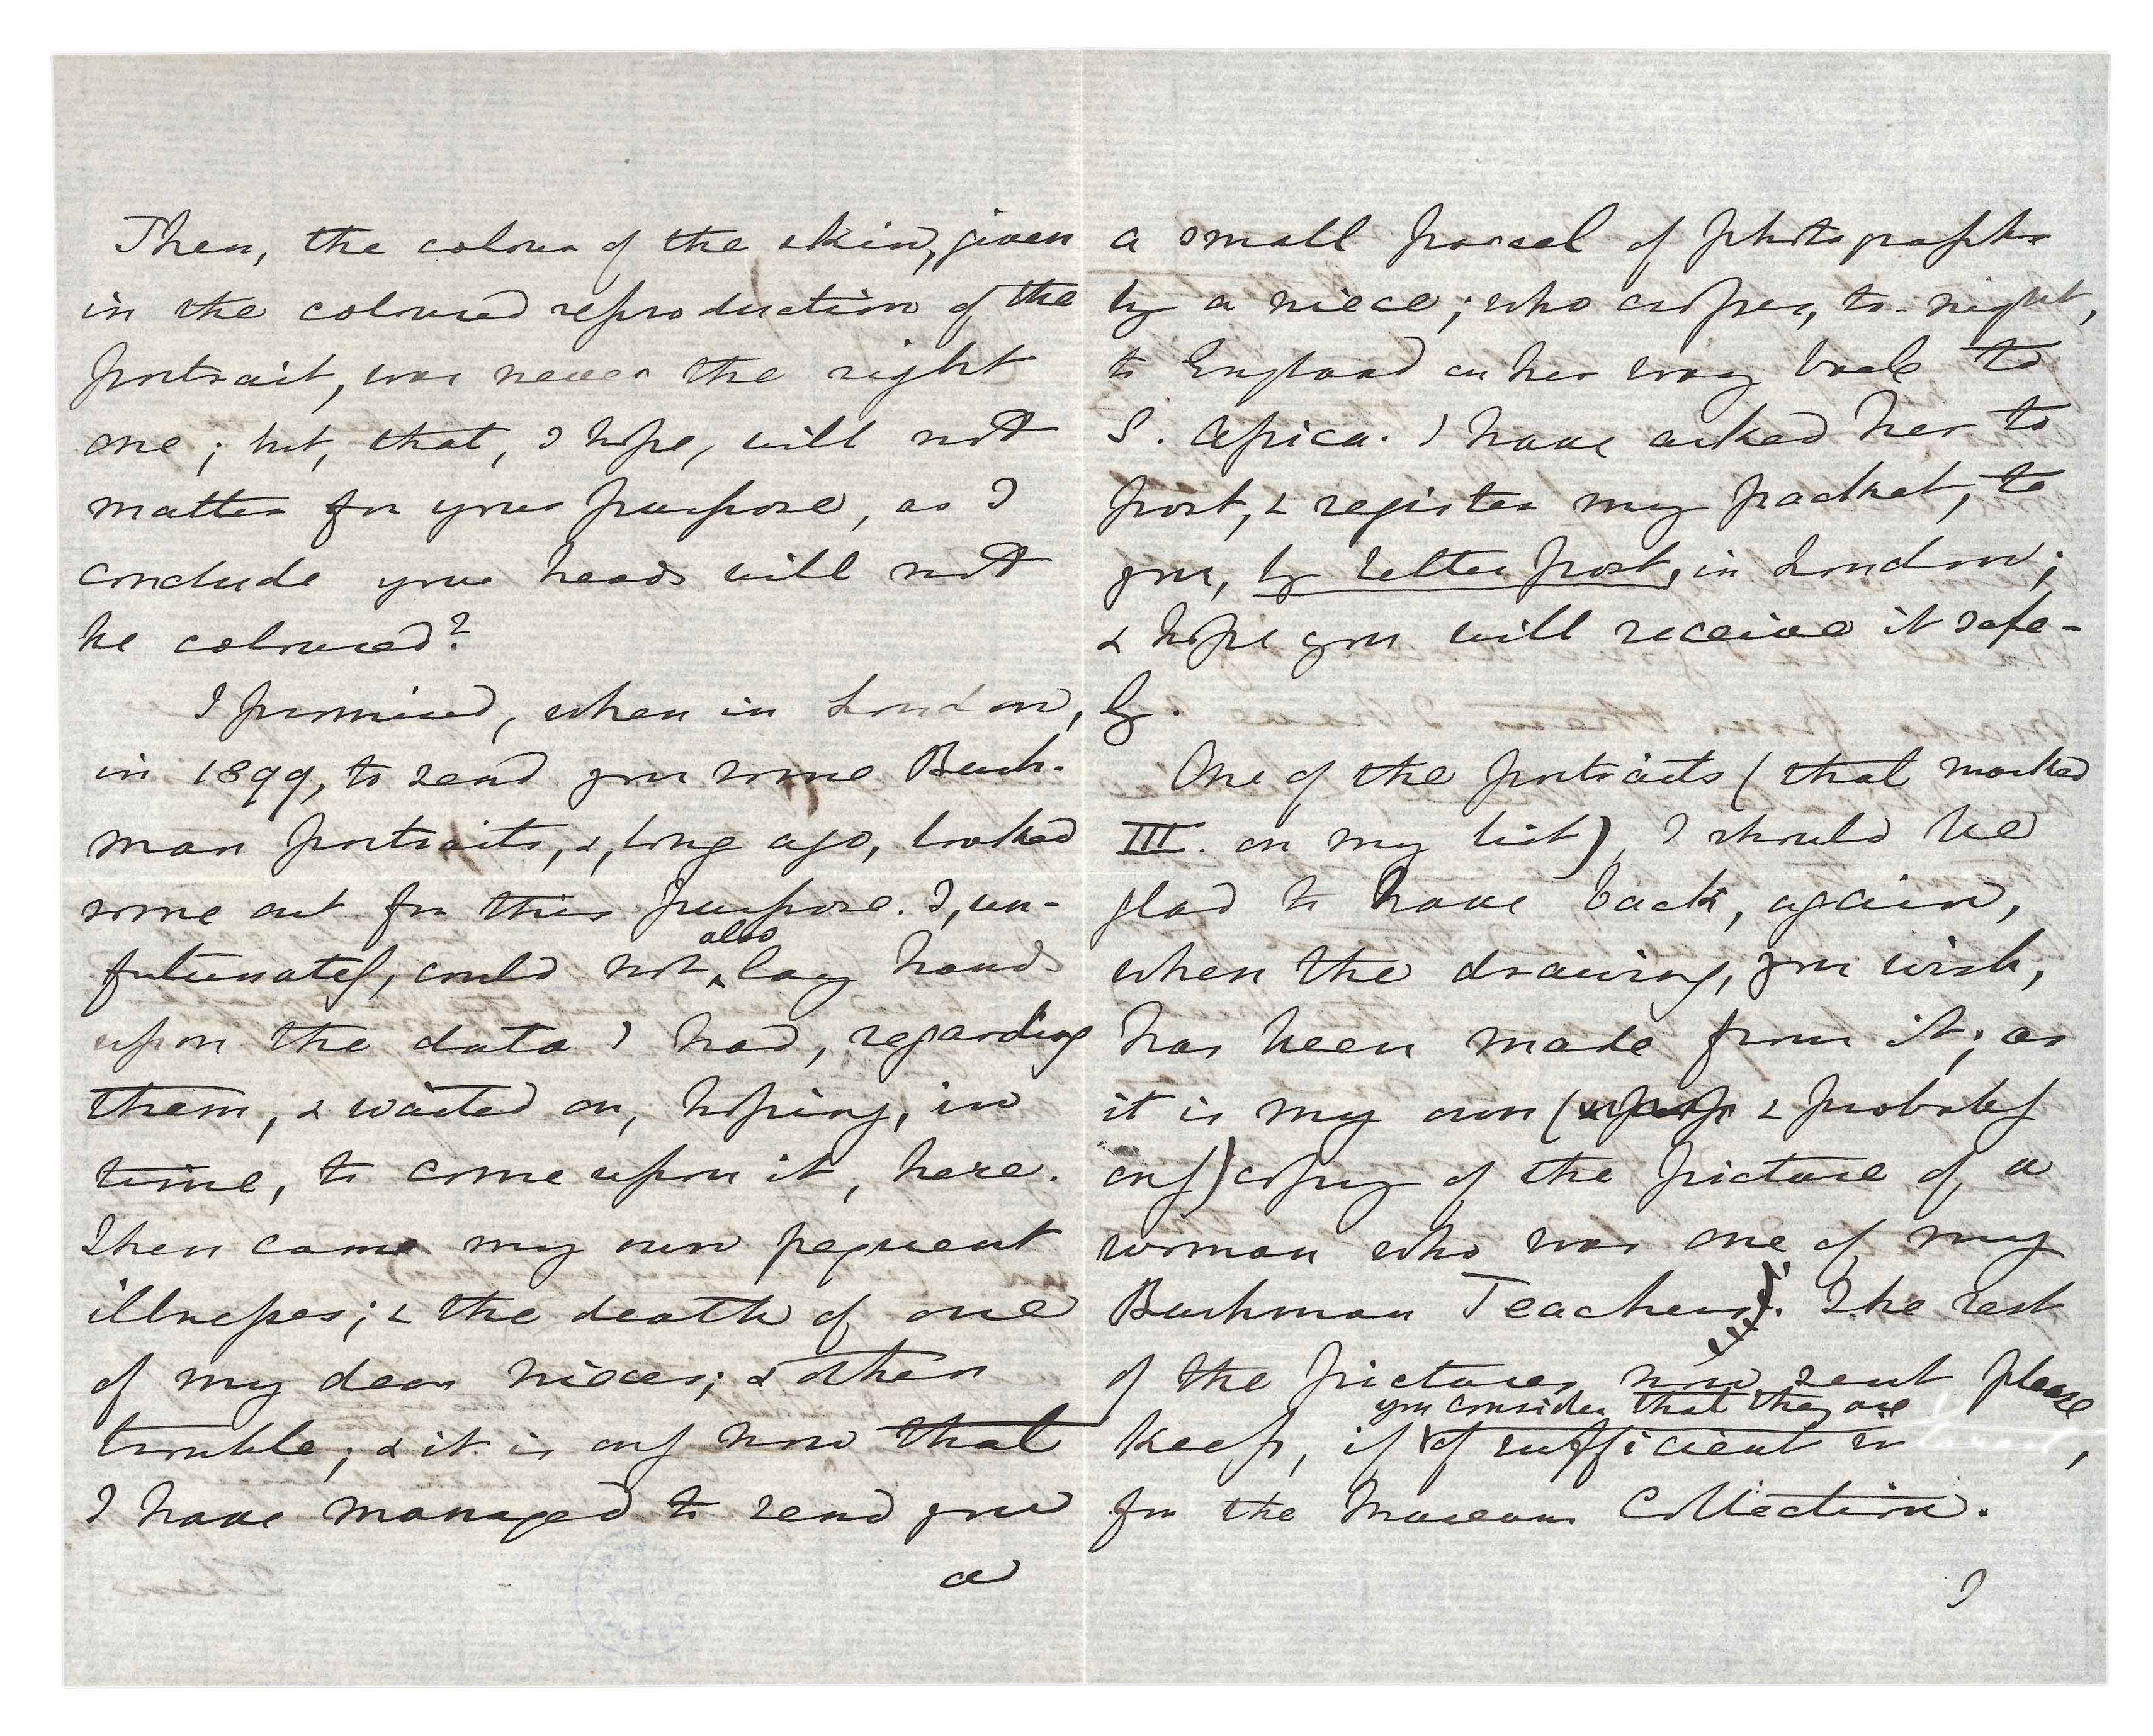 Then, the colour of the skin, given
in the coloured reproduction of the
portrait, was never the right
one; but, that, I hope, will not
matter for your purpose, as I
conclude your heads will not
be coloured?
I promised, when in London,
in 1899, to send you some Bush-
man portraits, &, long ago, looked
some out for this purpose. I, un-
fortunately, could not also lay hands
upon the data I had, regarding
them, & waited on, hoping, in
time, to come upon it, here.
Then came my own frequent
illnesses; & the death of one
of my dear nieces; & other
trouble; & it is only now that
I have managed to send you
a
a small parcel of photographs
by a niece; who crosses, to-night,
to England on her way back to
S. Africa. I have asked her to
post, & register my packet, to
you, by letter post, in London;
& hope you will receive it safe-
ly.
One of the portraits (that marked
III. on my list), I should be
glad to have back, again,
when the drawing, you wish,
has been made from it; as
it is my own ( & probably
only) copy of the picture of a
woman who was one of my
Bushman Teachers. The rest
of the pictures now sent please
you consider that they are
keep, if of sufficient in
for the Museum Collection.
I